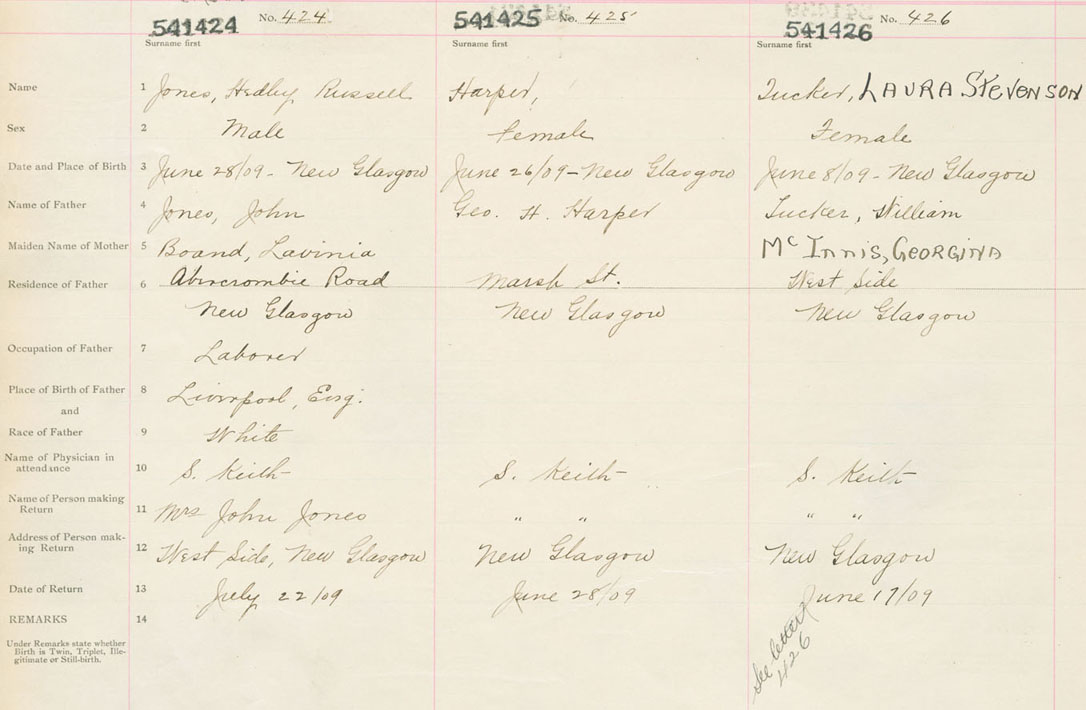 541424 No. 424
541425 No. 425
541426 No. 426
Surname first
Surname first
Surname first
Name 1 Jones, Hedley Russell Harper, Tucker, LAURA STEVENSON
Sex 2 Male Female Female
Date and Place of Birth 3 June 28/09 - New Glasgow June 26/09 - New Glasgow June 8/09 - New Glasgow
Name of Father 4 Jones, John Geo. H. Harper Tucker, William
Maiden Name of Mother 5 Boand, Lavinia Mc INNIS, GEORGINA
Residence of Father 6 Abercrombie Road Marsh St. West Side
New Glasgow New Glasgow New Glasgow
Occupation of Father 7 Laborer
Place of Birth of Father 8 Liverpool, Eng.
and
Race of Father 9 White
Name of Physician in
attendance 10 S. Keith S. Keith S. Keith
Name of Person making
Return 11 Mrs John Jones " " " "
Address of Person mak-
ing Return 12 West Side, New Glasgow New Glasgow New Glasgow
Date of Return 13 July 22/09 June 28/09 June 17/09
REMARKS 14
Under Remarks state whether
Birth is Twin, Triplet, Ille-
gitimate or Still-birth.
See letter
426